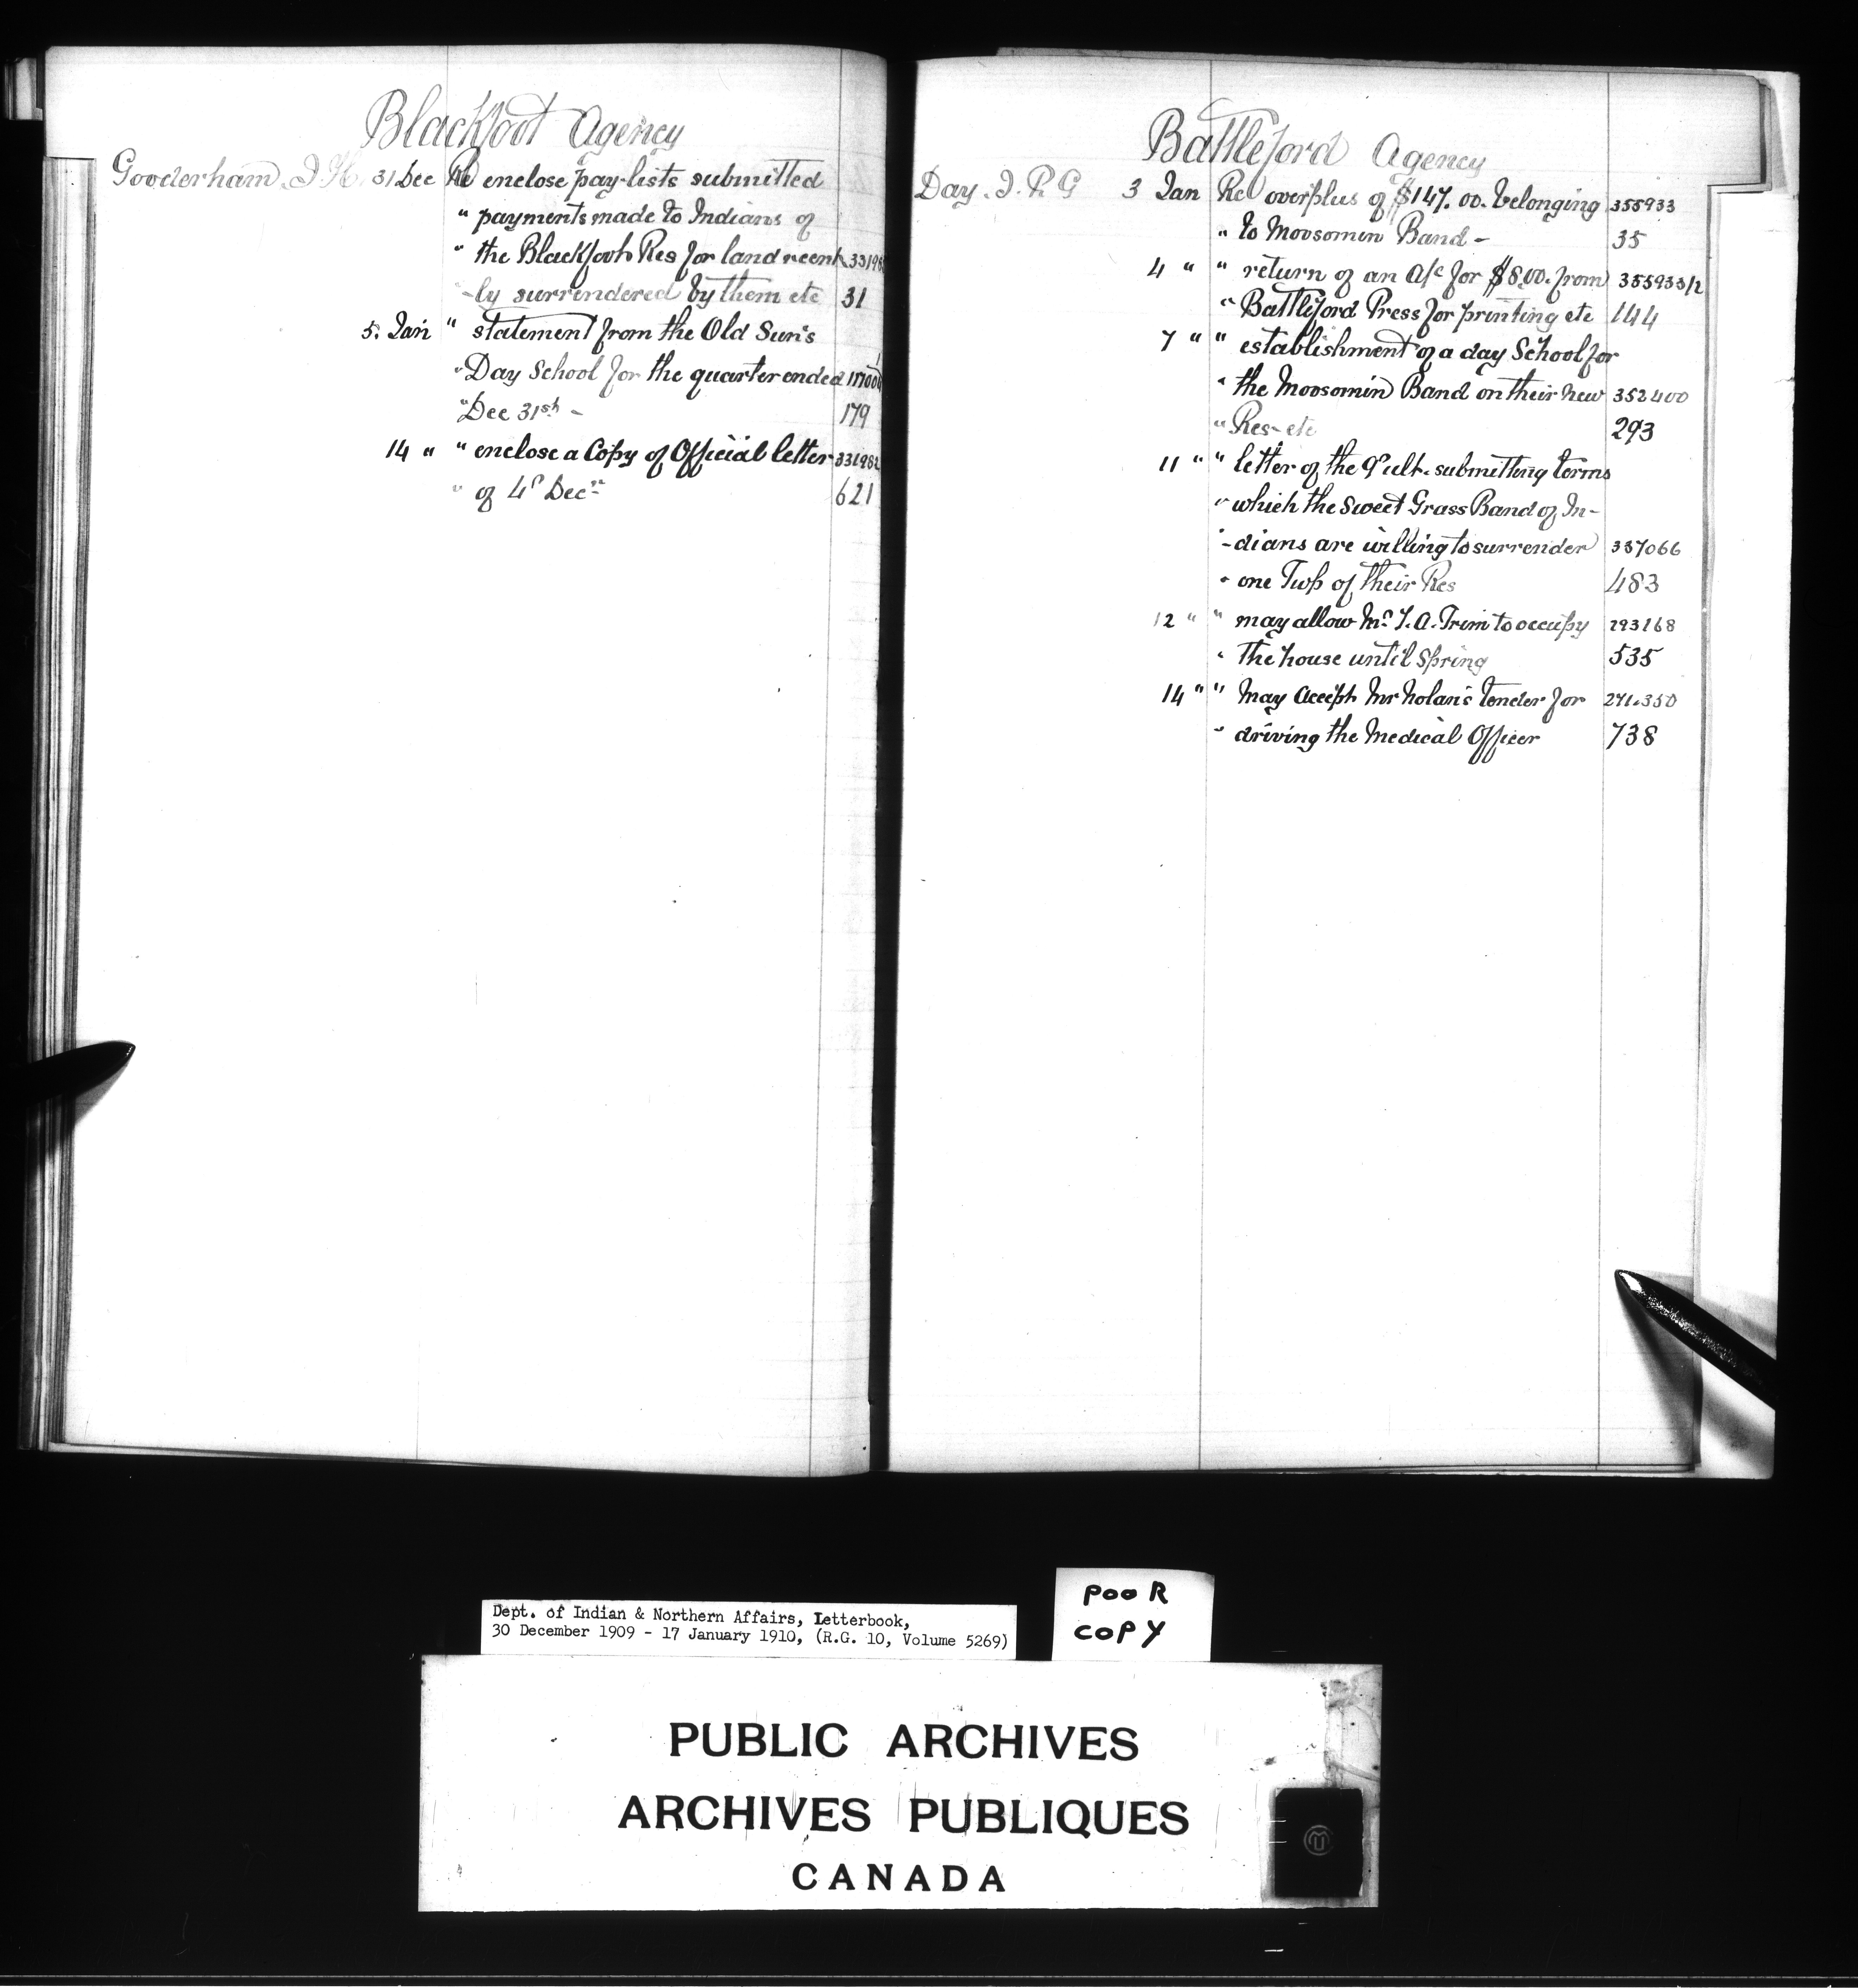 Blackfoot Agency
Gooderham. J. H. 31 Dec Re enclose pay-lists submitted
" payments made to Indians of
" the Blackfoot Res for land recent 33198
"-ly surrendered by them etc 31
5. Jan " statement from the Old Sun's
" Day School for the quarter ended
" Dec 31st - 179
14 " " enclose a Copy of Official letter 331982
" of 4th Decr 621
Battleford Agency
Day. J. P. G 3 Jan Re overplus of $147.00. belonging 355933
" to Moosomin Band - 35
4 " " return of an a/c for $8.00. from 355933/2
" Battleford Press for printing etc 144
7 " " establishment of a day School for
" the Moosomin Band on their new 352400
" Res- etc 293
11 " " letter of the 9th ult. submitting terms
" which the Sweet Grass Band of In-
"-dians are willing to surrender 337066
" one Twp of their Res 483
12 " " may allow Mr. J. A. Trim to occupy 293168
" the house until Spring 535
14 " " May accept Mr Nolan's tender for 241.350
" driving the Medical Officer 738
Dept. of Indian & Northern Affairs, Letterbook,
30 December 1909 - 17 January 1910, (R.G. 10, Volume 5269)
POOR
COPY
PUBLIC ARCHIVES
ARCHIVES PUBLIQUES
CANADA